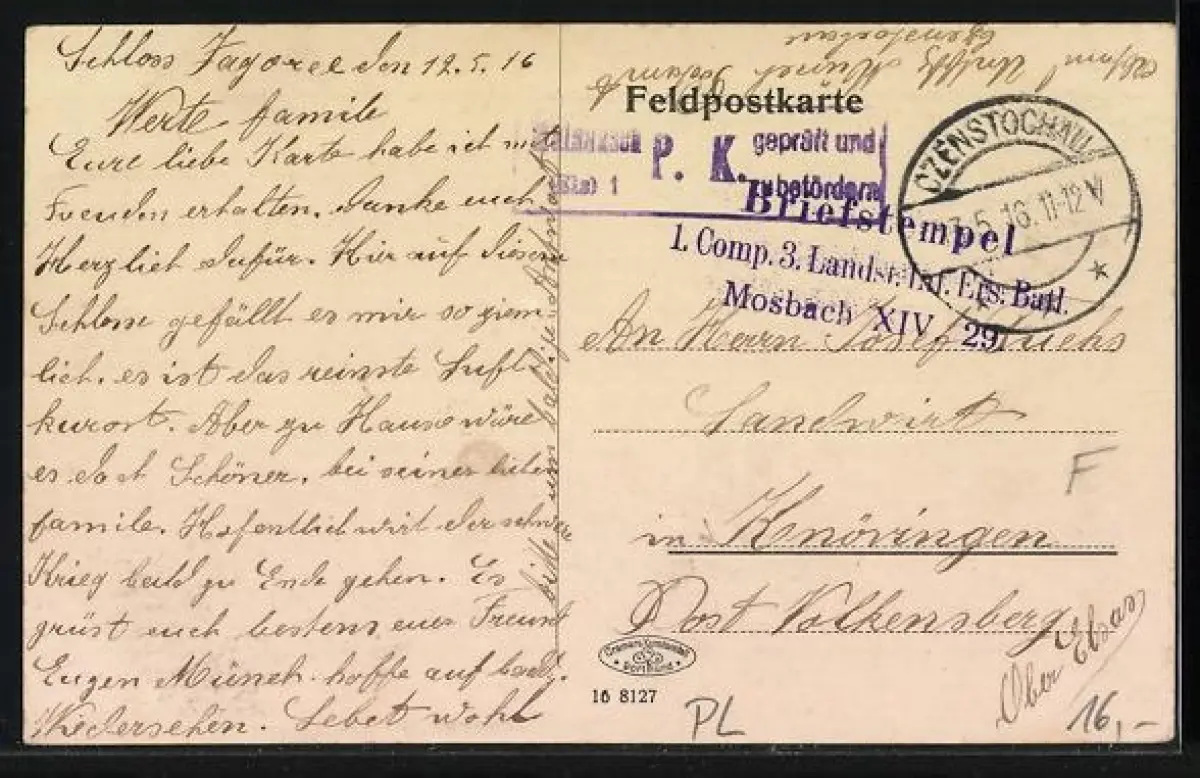 Schloss Zagorze den 12.5.16
Werte famile
Eure liebe Karte habe ich mit
Freuden erhalten. Danke euch
Herzlich dafür. Hier auf diesem
Schlosse gefällt es mir so ziem-
lich. es ist das reinste Luft-
kurort. Aber zu Hause wäre
es doch Schöner, bei seiner lieben
famile. Hofentlich wirt der schwere
Krieg bald zu Ende gehen. Es
grüst euch bestens euer Freunt
Eugen Münch hoffe auf bald.
Wiedersehen. Lebet wohl
bitte um baldige Antwort
Absen. Münch
Feldpostkarte
P. K. geprüft und
1 zu befördern
CZENSTOCHAU
5.16.11-12 V
Briefstempel
1. Comp. 3. Landst. Inf. Ers. Batl.
Mosbach XIV 29.
An Herrn Josef
Landwirt
F
in Knöringen
Post Volkensberg
Ober Elsas
Dortmund
16 8127
PL
16,-